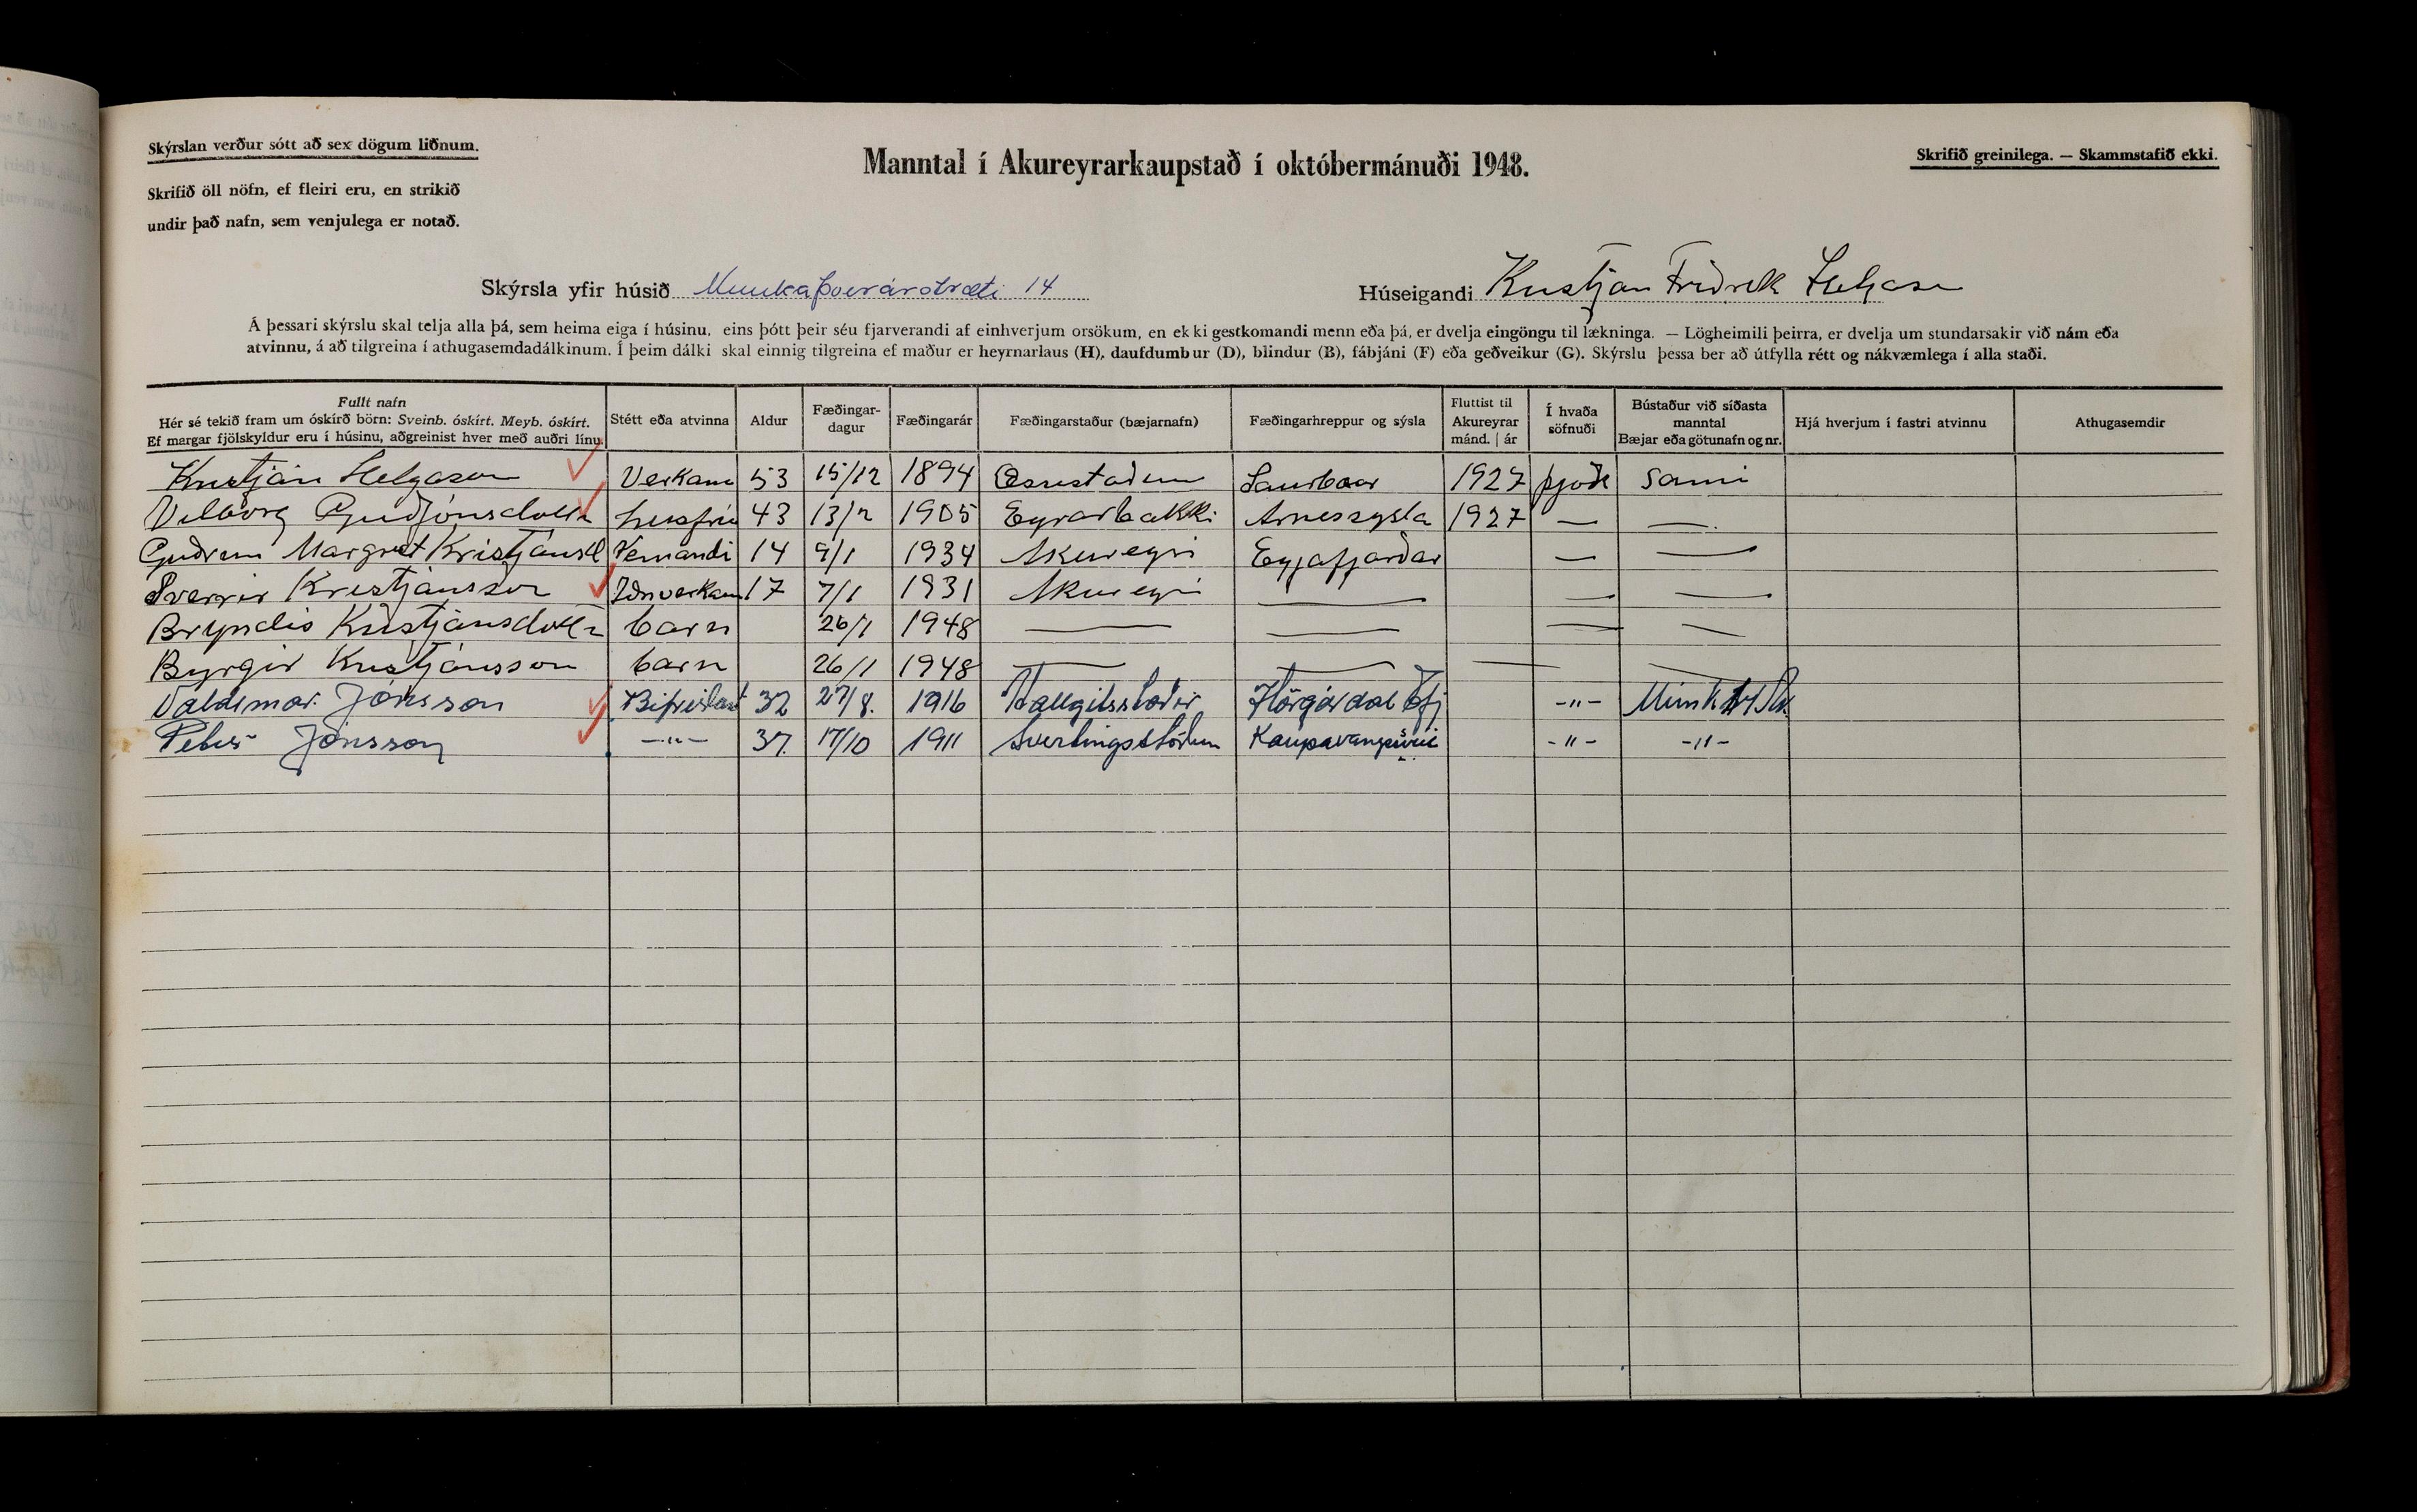 Skýrslan verður sótt að sex dögum liðnum.
Manntal í Akureyrarkaupstað í októbermánuði 1948.
Skrifið greinilega. — Skammstafið ekki.
Skrifið öll nöfn, ef fleiri eru, en strikið
undir það nafn, sem venjulega er notað.
Skýrsla yfir húsið Munkaþverárstræti 14
Húseigandi Kristján Friðrik Helgason
Á þessari skýrslu skal telja alla þá, sem heima eiga í húsinu, eins þótt þeir séu fjarverandi af einhverjum orsökum, en ekki gestkomandi menn eða þá, er dvelja eingöngu til lækninga. — Lögheimili þeirra, er dvelja um stundarsakir við nám eða
atvinnu, á að tilgreina í athugasemdadálkinum. Í þeim dálki skal einnig tilgreina ef maður er heyrnarlaus (H), daufdumbur (D), blindur (B), fábjáni (F) eða geðveikur (G). Skýrslu þessa ber að útfylla rétt og nákvæmlega í alla staði.
Fullt nafn
Hér sé tekið fram um óskírð börn: Sveinb. óskírt. Meyb. óskírt.
Ef margar fjölskyldur eru í húsinu, aðgreinist hver með auðri línu.
Stétt eða atvinna
Aldur
Fæðingar-
dagur
Fæðingarár
Fæðingarstaður (bæjarnafn)
Fæðingarhreppur og sýsla
Fluttist til
Akureyrar
mánd. | ár
Í hvaða
söfnuði
Bústaður við síðasta
manntal
Bæjar eða götunafn og nr.
Hjá hverjum í fastri atvinnu
Athugasemdir
Kristján Helgason Verkam 53 15/12 1894 Æsustaðum Saurbæar 1927 þjóðk Sami
Vilborg Guðjónsdóttir húsfrú 43 13/2 1905 Eyrarbakki Arnessysla 1927 — —
Guðrun Margret Kristjánsd Nemandi 14 9/1 1934 Akureyri Eyjafjarðar — —
Sverrir Kristjánsson Iðnverkam 17 7/1 1931 Akureyri — — —
Bryndis Kristjánsdottir barn 26/1 1948 — — — —
Byrgir Kristjánsson barn 26/1 1948 — — — —
Valdimar Jónsson Bifreiðast 32 27/8. 1916 Hallgilsstaðir Hörgárdal Efj -"- Munk 14 Ak.
Petur Jónsson -"- 37. 17/10 1911 Sverting­sstöðum -"- -"-